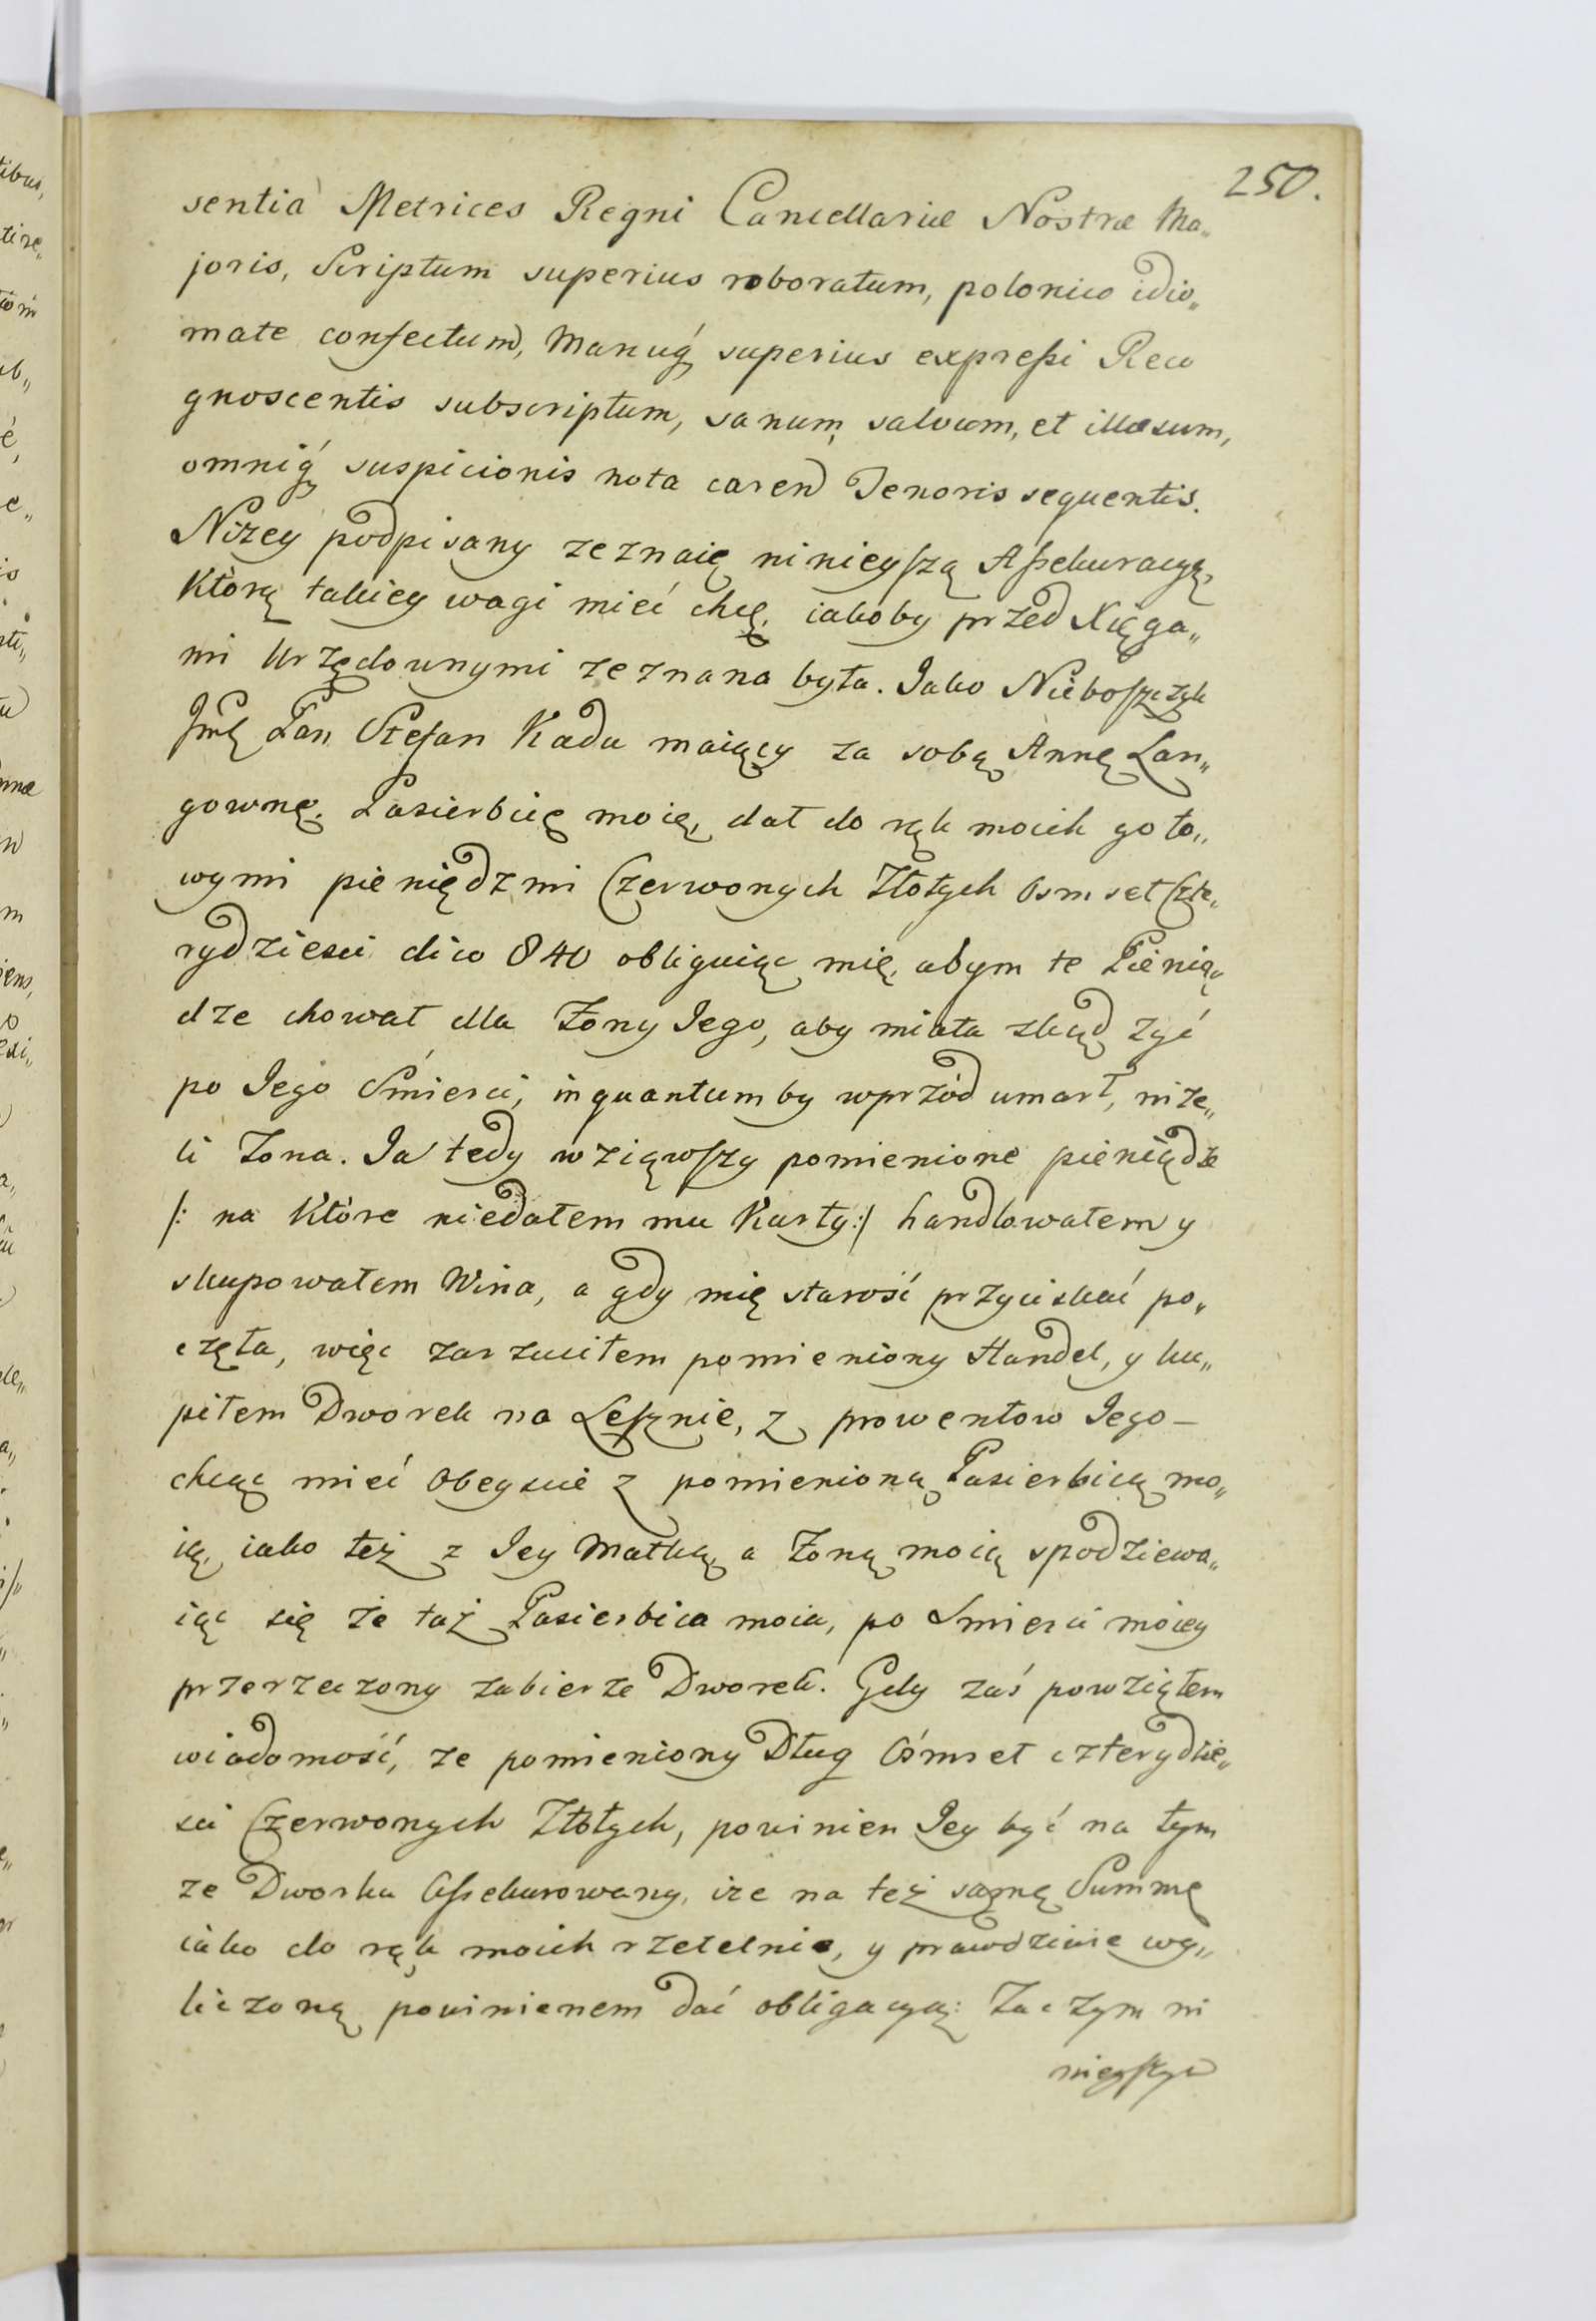 250.
sentia Metrices Regni Cancellariæ Nostræ Ma„
joris, Scriptum superius roboratum, polonico idio„
mate confectum, Manuq́ superius expreſsi Reco
gnoscentis subscriptum, sanum, salvum, et illæsum,
omniq́ suspicionis nota caren Tenoris sequentis.
Niżey podpisany zeznaię ninieyſzą Aſsekuracyą,
Którą takiey wagi mieć chcę, iakoby przed Xięga„
mi Urzędownymi zeznana była. Jako Nieboſzczyk
Jmć Pan Stefan Kadu maiący za sobą Annę Lan„
gownę, Pasierbicę moię, dał do rąk moich goto„
wymi pieniędzmi Czerwonych Złotych Osmset Czte„
rydziesci dico 840 obliguiąc mię, abym te Pienią„
dze chował dla Żony Jego, aby miała zkąd żyć
po Jego Śmierci, inquantumby wprzód umarł, niże„
li Żona. Ja tedy wziąwſzy pomienione pieniądze
/: na Które niedałem mu Karty:/ handlowałem y
skupowałem Wina, a gdy mię starość przyciskać po„
częła, więc zarzuciłem pomieniony Handel, y ku„
piłem Dworek na Leſznie, z prowentow Jego –
chcąc mieć Obeyscie z pomienioną Pasierbicą mo„
ią, iako też z Jey Matką, a Żoną moią spodziewa„
iąc się że taż Pasierbica moia, po Smierci moiey
przerzeczony zabierze Dworek. Gdy zaś powziąłem
wiadomość, że pomieniony Dług Ośmset czterydzie„
sci Czerwonych Złotych, powinien Jey być na tym
że Dworku Aſsekurowany, iże na też samę Summę
iako do rąk moich rzetelnie, y prawdziwie wy„
liczoną powinienem dać obligacyą: Zaczym ni
nieyſzy